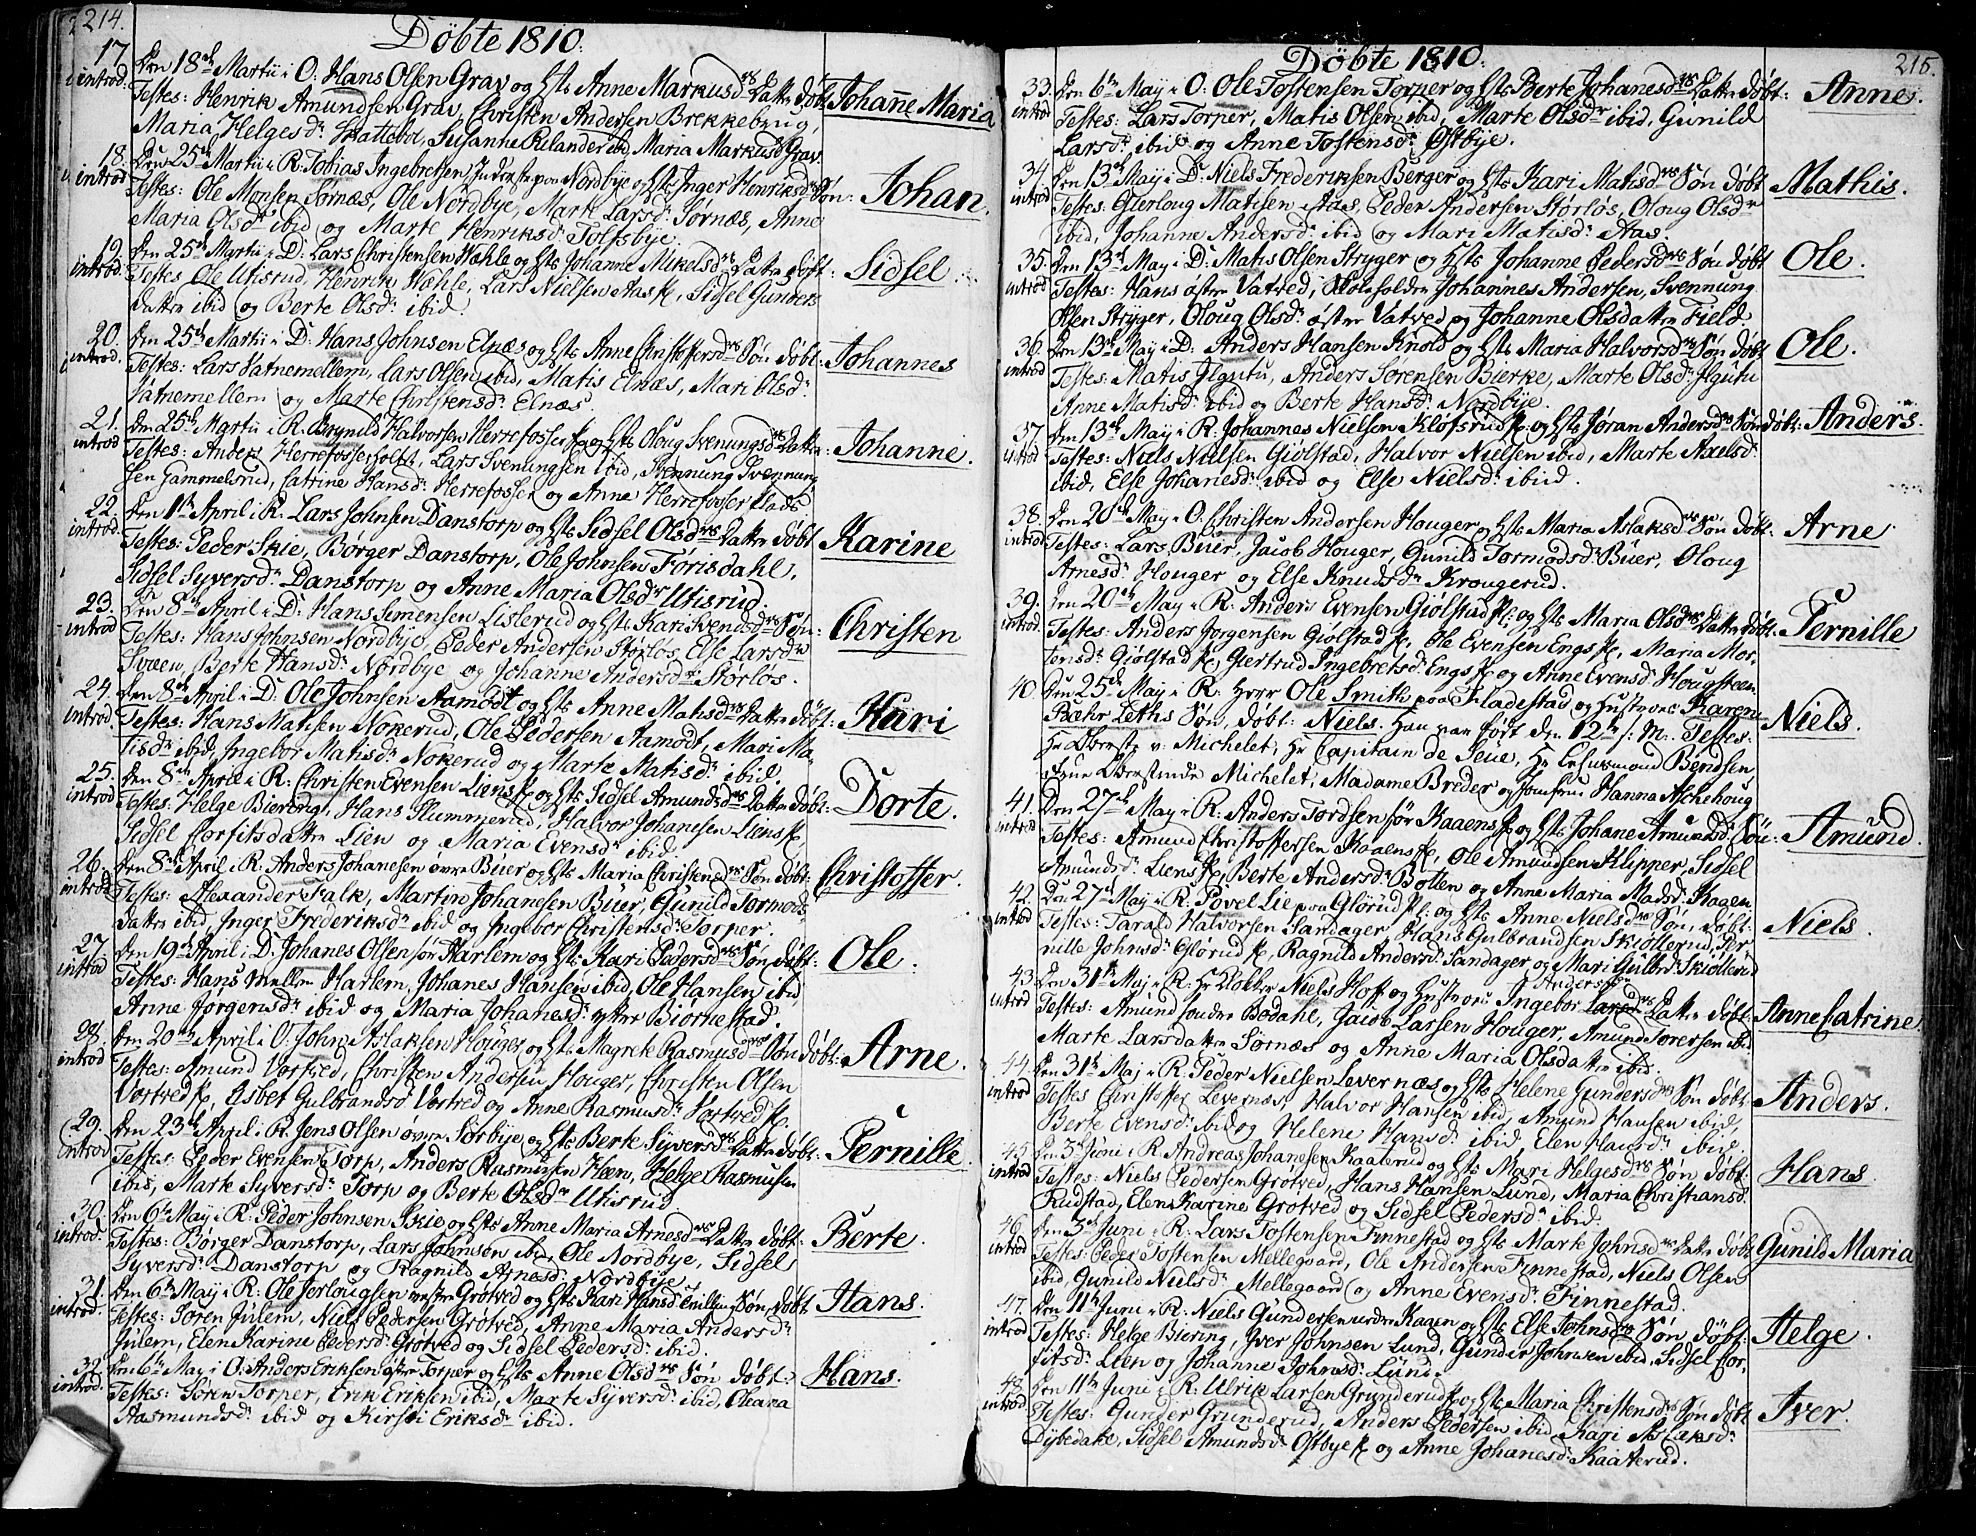 214.
Döbte 1810.
17. Den 18de Martii i O. Hans Olsen Grav og Hst. Anne Markusdrs Datter döbt Johanne Maria
introd. Testes: Henrik Amundsen Grav, Christen Andersen Brekkebrug,
Maria Helgesdr Skattebol, Susanne Rilander ibd, Maria Markusdr Grav.
18. Den 25de Martii i R. Tobias Ingebretsen, Inderste paa Nordbye og Hst. Inger Henriksdrs Sön: Johan.
introd Testes: Ole Monsen Sørnæs, Ole Nordbye, Marte Larsdr Sørnæs, Anne
Maria Olsdr ibid og Marte Henriksdr Tolfsbye.
19. Den 25de Martii i D. Lars Christensen Wæhle og Hst. Johanne Mikelsdrs Datter döbt Sidsel.
introd. Testes Ole Utisrud, Henrik Wæhle, Lars Nielsen Aas, Sidsel Gunders
datter ibid og Berte Olsdr ibid.
20. Den 25de Martii i D. Hans Johnsen Elnæs og Hst. Anne Christoffersdrs Sön döbt: Johannes
introd. Testes: Lars Vatnemellem, Lars Olsen ibid, Matis Elnæs, Mari Olsdr
Vatnemellem og Marte Christensdr Elnæs.
21. Den 25de Martii i R. Brynild Halvorsen Herrefosser og Hst. Oloug Svenungsdrs Datter: Johanne.
introd Testes: Anders Herrefosserholt, Lars Svenungsen ibid, Svennung Svennung
sen Gammelsrud, Catrine Hansdr Herrefosser og Anne Herrefosser Plads
22. Den 1te April i R. Lars Johnsen Danstorp og Hst. Sidsel Olsdrs Datter döbt Karine
introd Testes: Peder Skie, Börger Danstorp, Ole Johnsen Förisdahl,
Sidsel Syversdr Danstorp og Anne Maria Olsdr Utisrud.
23. Den 8de April i D. Hans Simensen Lislerud og Hst. Kari Svendsdrs Sön: Christen
introd Testes: Hans Johnsen Nordbye, Peder Andersen Storlös, Else Larsdr
Svæen, Berte Hansdr Nordbye og Johanne Andersdr Storlös.
24. Den 8de April i D. Ole Johnsen Aamodt og Hst. Anne Matisdrs Datter döbt: Kari
introd. Testes: Hans Matisen Nokerud, Ole Pedersen Aamodt, Mari Ma-
tisdr ibid, Ingebor Matisdr Nokerud og Marte Matisdr ibid.
25. Den 8de April i R. Christen Evensen Liens og Hst. Sidsel Amundsdrs Datter döbt: Dorte.
introd Testes: Helge Biering, Hans Hummerud, Halvor Johanesen Liens
Sidsel Corfitsdatter Lien og Maria Evensdr ibid.
26. Den 8de April i R. Anders Johanesen övre Büer og Hst. Maria Christensdrs Sön döbt: Christoffer.
introd Testes: Alexander Falk, Martin Johanesen Büer, Gunild Tormods
datter ibid, Inger Frederiksdr ibid og Ingebor Christensdr Torper.
27. Den 19de April i D. Johanes Olsen sör Harlem og Hst. Kari Pedersdrs Sön döbt: Ole.
introd Testes: Hans mellem Harlem, Johanes Hansen ibid, Ole Hansen ibid
Anne Jörgensdr ibid og Maria Johanesdr yttre Biörnestad.
28. Den 20de April i O. John Aslaksen Houger og Hst. Magrete Rasmusdrs Sön döbt: Arne.
introd Testes: Amund Vortved, Christen Andersen Houger, Christen Olsen
Vortved, Lisbet Gulbrandsdr Vortved og Anne Rasmusdr Vortved.
29. Den 23de April i R. Jens Olsen övre Sörbye og Hst. Berte Syversdrs Datter döbt: Pernille.
introd Testes: Peder Evensen Torp, Anders Rasmusen Heen, Helge Rasmusen
ibid, Marte Syversdr Torp og Berte Olsdr Utisrud
30. Den 6te May i R. Peder Johnsen Skie og Hst. Anne Maria Arnesdrs Datter döbt: Berte.
introd. Testes: Börger Danstorp, Lars Johnsen ibid, Ole Nordbye, Sidsel
Syversdr Danstorp og Ragnild Arnesdr Nordbye.
31. Den 6te May i R. Ole Jerlougsen vestre Grötved og Hst. Kari Hansdr Tvilling Sön döbt Hans.
introd. Testes: Sören Julem, Niels Pedersen Grötved, Anne Maria Andersdr
Julem, Elen Karine Pedersdr Grötved og Sidsel Pedersdr ibid.
32. Den 6te May i O. Anders Eriksen östre Torper og Hst. Anne Olsdrs Sön döbt: Hans.
introd. Testes: Sören Torper, Erik Eriksen ibid, Marte Syversdr ibid, Oleana
Rasmundsdr ibid og Kirsti Eriksdr ibid.
215.
Döbte 1810.
33. Den 6te May i O. Ole Tostensen Torper og Hst. Berte Johanesdrs Datter döbt: Anne.
introd Testes: Lars Torper, Matis Olsen ibid, Marte Olsdr ibid, Gunild
Larsdr ibid og Anne Tostensdr Østbye.
34. Den 13de May i D. Niels Frederiksen Berger og Hst. Kari Matisdrs Sön döbt Mathis.
introd Testes: Gierloug Matisen Aas, Peder Andersen Storlös, Oloug Olsdr
ibid, Johanne Andersdr ibid og Mari Matisdr Aas.
35. Den 13de May i D. Matis Olsen Stryger og Hst. Johanne Pedersdrs Sön döbt Ole.
introd Testes: Hans östre Vatved, Skoleholder Johannes Andersen, Svennung
Olsen Stryger, Oloug Olsdr östre Vatved og Johanne Olsdatter Field
36. Den 13de May i D. Anders Hansen Knold og Hst. Maria Halvorsdrs Sön döbt Ole.
introd Testes: Matis Ilgutu, Anders Sörensen Bierke, Marte Olsdr Ilgutu
Anne Matisdr ibid og Berte Hansdr Nordbye.
37. Den 13de May i R. Johannes Nielsen Klöfsrud og Hst. Jöran Andersdrs Sön döbt: Anders.
introd Testes: Niels Nielsen Giölstad, Halvor Nielsen ibid, Marte Axelsdr
ibid, Else Johanesdr ibid og Else Nielsdr ibid.
38. Den 20de May i O. Christen Andersen Houger og Hst. Maria Aslaksdrs Sön döbt: Arne
introd Testes: Lars Büer, Jacob Houger, Gunild Tormodsdr Büer, Oloug
Arnesdr Houger og Else Knudsdr Krougerud.
39. Den 20de May i R. Anders Evensen Giölstad og Hst. Maria Olsdrs Datter döbt: Pernille
introd Testes: Anders Jörgensen Giölstad, Ole Evensen Engs, Maria Mor-
tensdr Giölstad, Giertrud Ingebretsdr Engs og Anne Evensdr Hougsteen
40. Den 25de May i R. Herr Ole Smith paa Fladestad og Hustroes Karen
Bæhr Leths Sön, döbt: Niels. Han var födt den 12te s. M. Testes: Niels.
Hr Oberste v. Michelet, Hr Capitain de Seue, Hr Lensmand Bendsen,
Frue Oberstinde Michelet, Madame Breder og Jomfrue Hanna Aschehoug
41. Den 27de May i R. Anders Tordsen sör Kaaens og Hst. Johane Amundsdrs Sön: Amund.
introd Testes: Amund Christoffersen Kaaens, Ole Amundsen Klipper, Sidsel
Amundsdr Liens, Berte Andersdr Botten og Anne Maria Madsdr Hagen
42. Den 27de May i R. Povel Lie paa Glörud og Hst. Anne Nielsdrs Sön, döbt: Niels
introd Testes: Tarald Halvorsen Sandager, Hans Gulbrandsen Skiöllerud, Per
nille Johnsdr Glörud, Ragnild Andersdr Sandager og Mari Gulbrdr Skiöllerud
43. Den 31te May i R. Hr Klokker Niels Hoff og Hustroes Ingebor Andersdrs Datter döbt: Anne Catrine.
introd Testes: Amund söndre Bodahl, Jacob Larsen Houger, Amund Sörensen ibd
Marte Larsdatter Sørnæs og Anne Maria Olsdatter ibid.
44. Den 31te May i R. Peder Nielsen Levernæs og Hst. Helene Gundersdrs Sön döbt: Anders.
introd Testes Christoffer Levernæs, Halvor Hansen ibid, Amund Hansen ibid,
Berte Evensdr ibid og Helene Hansdr ibid, Elen Hansdr ibid.
45. Den 3de Juni i R. Andreas Johanesen Kaaterud og Hst. Mari Helgesdrs Sön döbt: Hans
introd Testes: Niels Pedersen Grotved, Hans Hansen Lund, Maria Christiansdr
Rudstad, Elen Karine Grotved og Sidsel Pedersdr ibid.
46. Den 3de Juni i R. Lars Tostensen Finnestad og Hst. Marte Johnsdrs Datter döbt Gunild Maria
introd Testes: Peder Tostensen Mellegaard, Ole Andersen Finnestad, Niels Olsen
ibid, Gunild Nielsdr Mellegaard og Anne Evensdr Finnestad.
47. Den 11te Juni i R. Niels Gundersen nedre Kaaen og Hst. Else Johnsdrs Sön döbt: Helge.
introd Testes: Helge Biering, Iver Johnsen Lund, Gunder Johnsen ibid, Sidsel Cor-
fitsdr Lien og Johanne Johnsdr Lund.
48. Den 11te Juni i R. Ulrik Larsen Grunderud og Hst. Maria Christensdrs Sön döbt Iver.
introd Testes: Gunder Grunderud, Anders Pedersen ibid, Kari Aslaksdr
Dybedahl, Sidsel Amundsdr Ostbye og Anne Johanesdr Kaaterud.